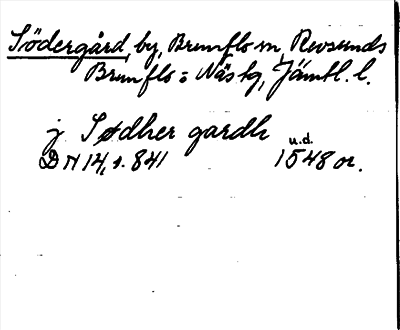 Södergård, by, Brunflo sn, Revsunds
Brunflo o Näs tg, Jämtl. l.
j Sødher gardh
u.d.
DN 14, s. 841 1548 or.